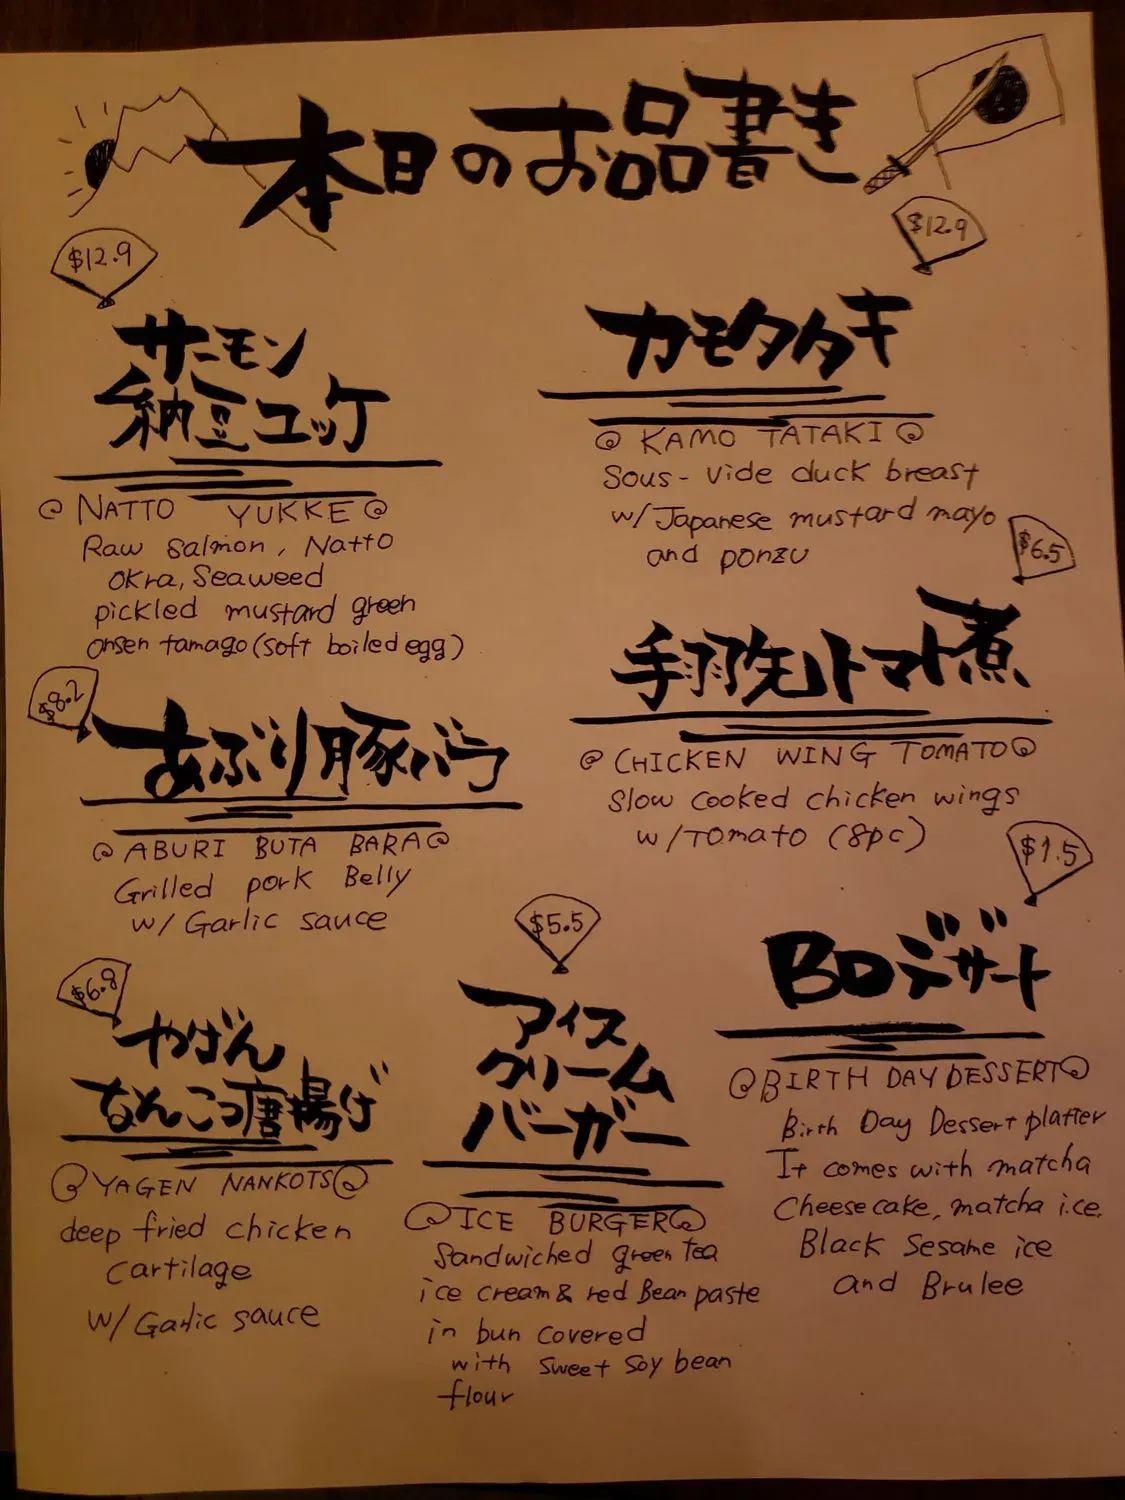 本日のお品書き
$12.9
サーモン
納豆ユッケ
NATTO YUKKE
Raw salmon, Natto
okra, Seaweed
pickled mustard green
onsen tamago (soft boiled egg)
$12.9
カモタタキ
KAMO TATAKI
Sous-vide duck breast
w/Japanese mustard mayo
and ponzu
$8.2
あぶり豚バラ
ABURI BUTA BARA
Grilled pork Belly
w/ Garlic sauce
$6.5
手羽先トマト煮
CHICKEN WING TOMATO
Slow cooked chicken wings
w/Tomato (8pc)
$6.8
やげん
なんこつ唐揚げ
YAGEN NANKOTS
deep fried chicken
cartilage
w/ Garlic sauce
$5.5
アイス
クリーム
バーガー
ICE BURGER
Sandwiched green tea
ice cream & red Bean paste
in bun covered
with sweet soy bean
flour
$1.5
BDデザート
BIRTH DAY DESSERT
Birth Day Dessert platter
It comes with matcha
Cheese cake, matcha ice,
Black Sesame ice
and Brulee